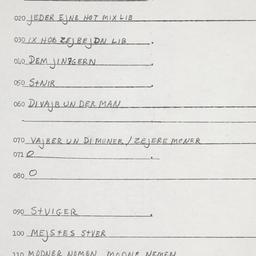 020 JEDER EJNE HOT MIX LIB
030 IX HOB ZEJ BEJDN LIB
040 DEM JINGERN
050 StNIR
060 DI VAJB UN DER MAN
070 VAJBER UN DI MENER / ZEJERE MENER
071 0
080 0
090 StVIGER
100 MEJSTES StVER
110 MODNER NOMEN, MODNE NEMEN